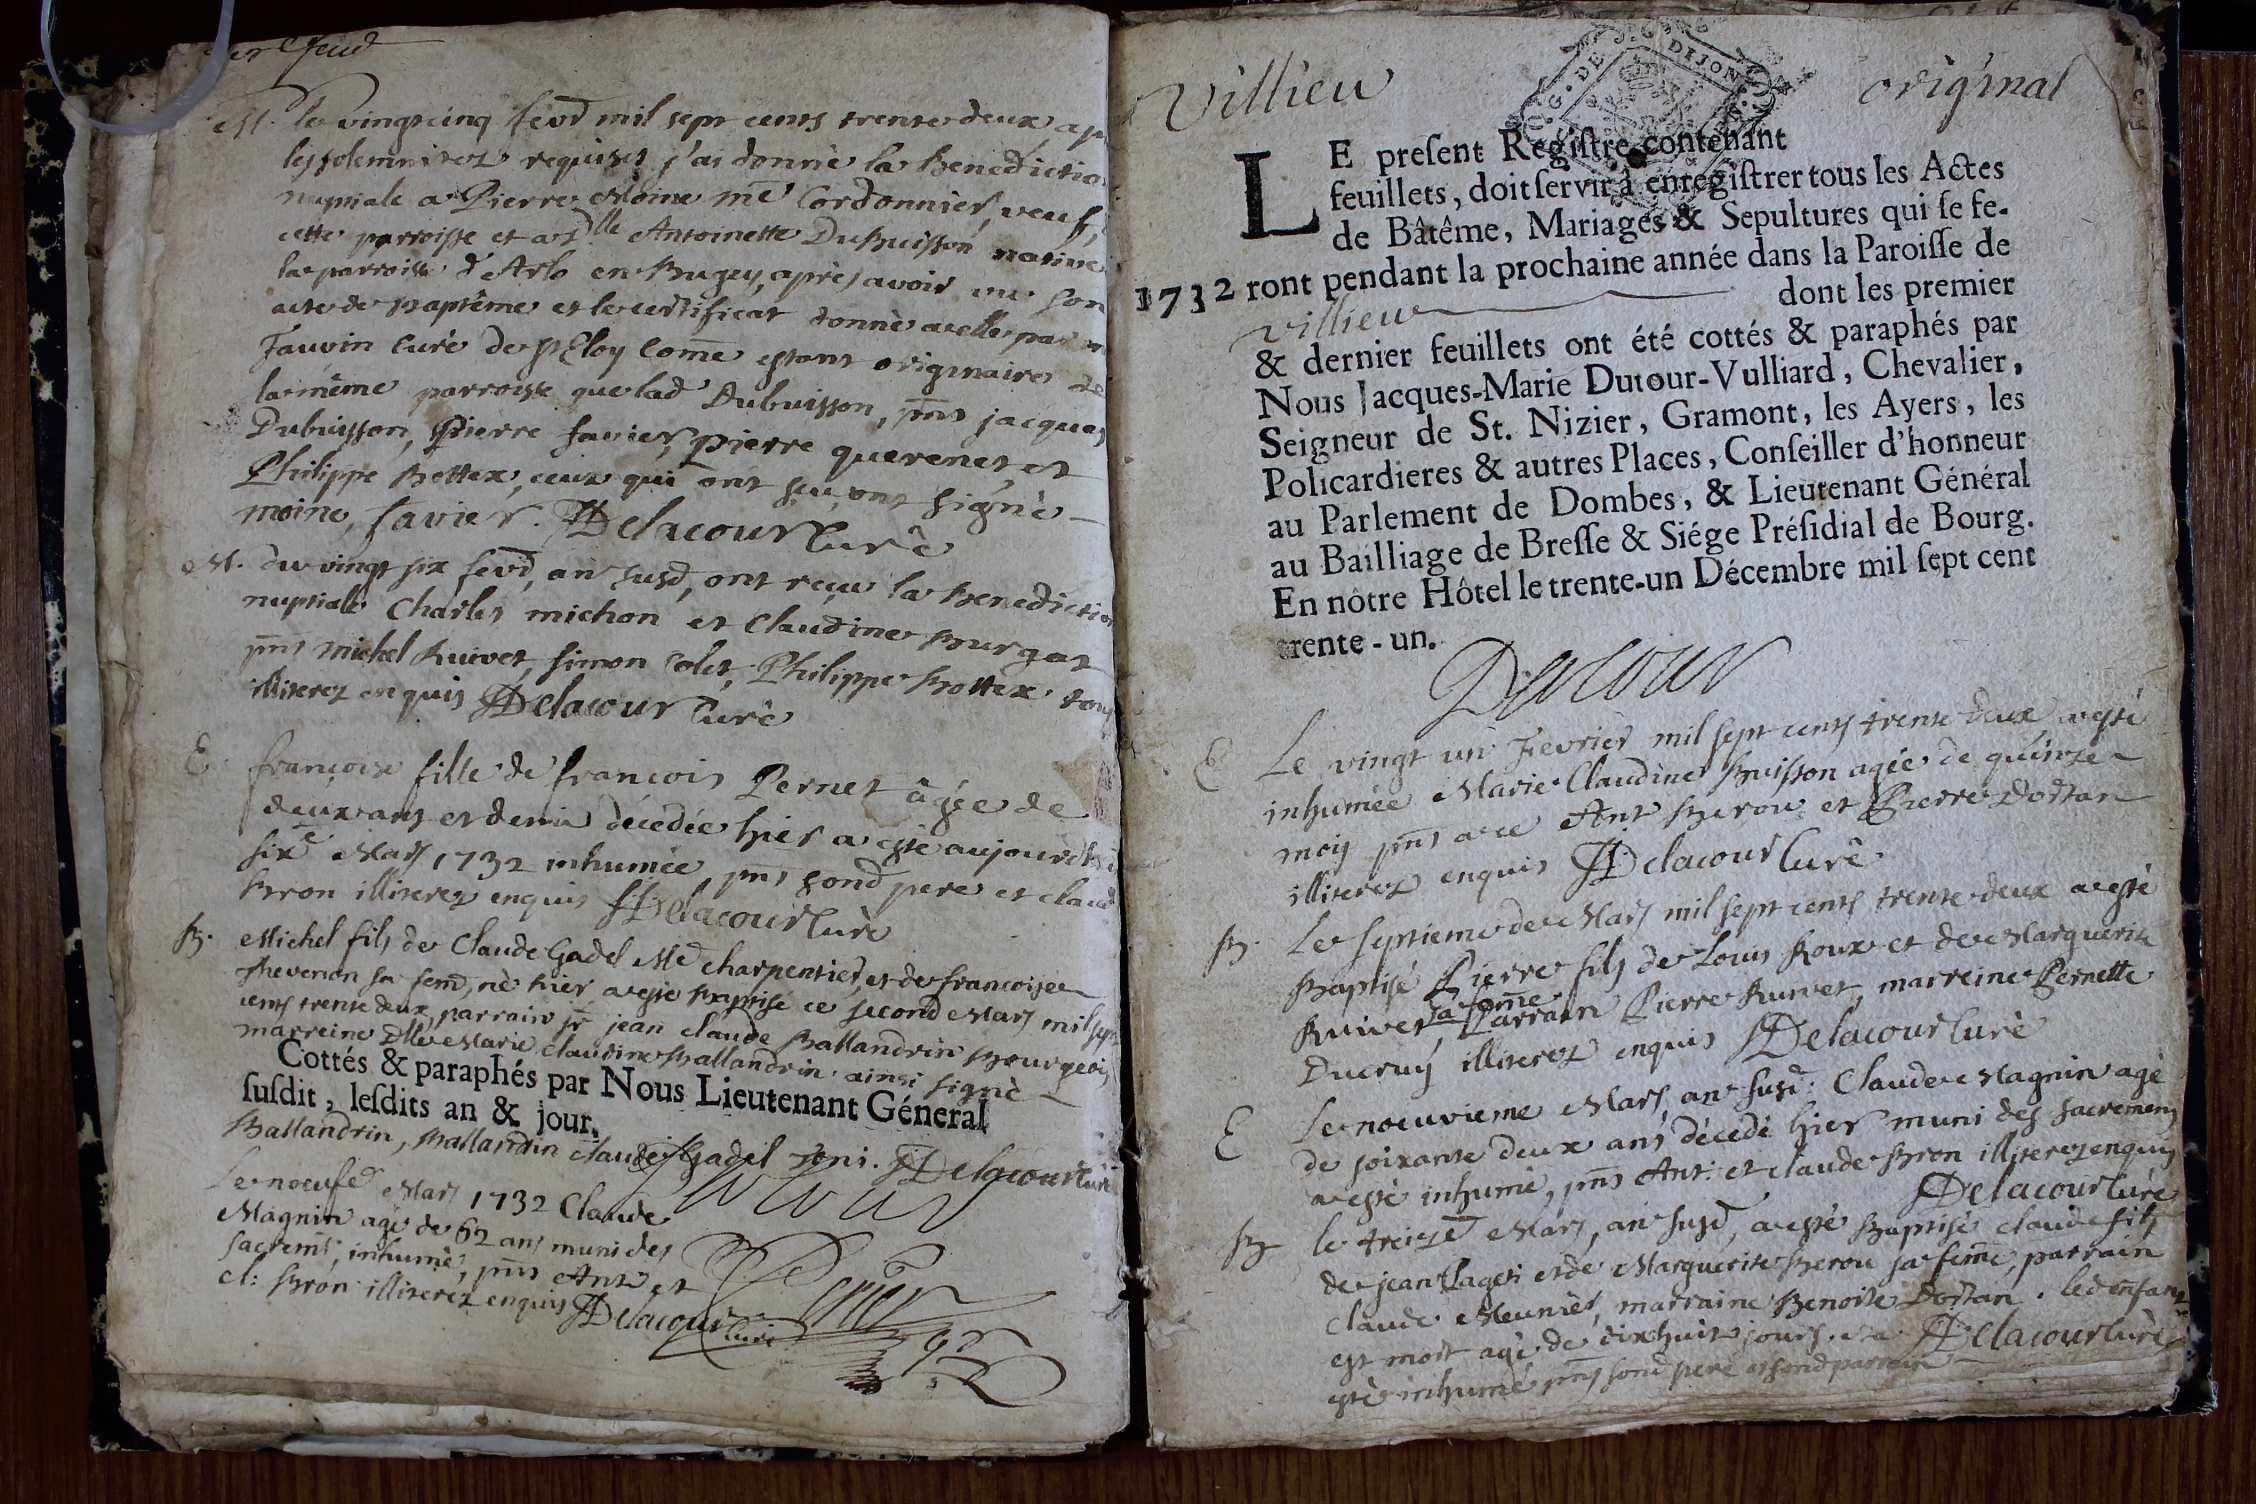 M. le vingtcinq fevr mil sept cents trente deux ap
les solemnitez requises j'ai donné la Benedictio
nuptiale a Pierre Moine me Cordonnier, veuf,
cette parroisse et a dlle Antoinette DuBuisson native
la parroisse d'Arlo en Bugey, après avoir vu son
acte de Baptême et le certificat donné a elle par
Fauvin Curé de St Eloy Come estant originaires de
la même parroisse que lad Dubuisson, pns jacques
Dubuisson, pierre favier, pierre querenet et
Philippe Bottex, ceux qui ont sçu ont signé
moine, favier. Delacour Curé
M. du vingt six fevr, an susd, ont reçu la Benedictio
nuptiale Charles michon et Claudine Burgat
pns michel Ruivet, simon Colet, Philippe Bottex tous
illiterez enquis Delacour Curé
E. françoise fille de françois Pernet âgée de
deux ans et demi décedée hier a esté aujourdh
sixe Mars 1732 inhumée, pns sond pere et claud
Bron illiterez enquis Delacour Curé
B. Michel fils de Claude Gadel Me charpentier, et de françoise
Thevenon sa fem, né hier a esté Baptisé ce second Mars mil sept
cents trente deux, parrain sr jean claude Ballandrin Bourgeois
marreine Dlle Marie claudine Ballandrin ainsi signé
Cottés & paraphés par Nous Lieutenant Géneral
ſuſdit, leſdits an & jour.
Ballandrin, Ballandrin claude Gadel Delacour Curé
Le noeufe Mars 1732 Claude
Magnin agé de 62 ans muni des
sacremts, inhumé, pns Ant et
cl: Bron illiterez enquis Delacour
Curé
Villieu
original
G. DE DIJON
LE preſent Regiſtre contenant
feuillets, doit ſervir à enregiſtrer tous les Actes
de Bâtême, Mariages & Sepultures qui ſe fe-
1732 ront pendant la prochaine année dans la Paroiſſe de
villieu dont les premier
& dernier feuillets ont été cottés & paraphés par
Nous Jacques-Marie Dutour-Vulliard, Chevalier,
Seigneur de St. Nizier, Gramont, les Ayers, les
Policardieres & autres Places, Conſeiller d'honneur
au Parlement de Dombes, & Lieutenant Général
au Bailliage de Breſſe & Siége Préſidial de Bourg.
En nôtre Hôtel le trente-un Décembre mil ſept cent
trente-un.
E Le vingt un Fevrier mil sept cents trente deux a esté
inhumée Marie Claudine Buisson agée de quinze
mois pns a ce Ant Berou et Pierre Dortan
illiterez enquis Delacour Curé
B. Le septieme de Mars mil sept cents trente deux a esté
Baptisé Pierre fils de Louis Roux et de Marguerite
sa feme
Ruivet, Parrain Pierre Ruivet, marreine Pernette
Ducruy illiterez enquis Delacour Curé
E Le noeuvieme Mars, an susd. Claude Magnin agé
de soixante deux ans décedé hier muni des sacremens
a esté inhumé, pns Ant: et claude Bron illiterez enquis
Delacour Curé
B le treize Mars, an susd, a esté Baptisé claude fils
de jean et de Marguerite Berou sa feme, parrain
claude Meunier, marraine Benoite Dortan. led enfant
est mort agé de dixhuit jours et a Delacour Curé
esté inhumé pns sond pere et sond parrain